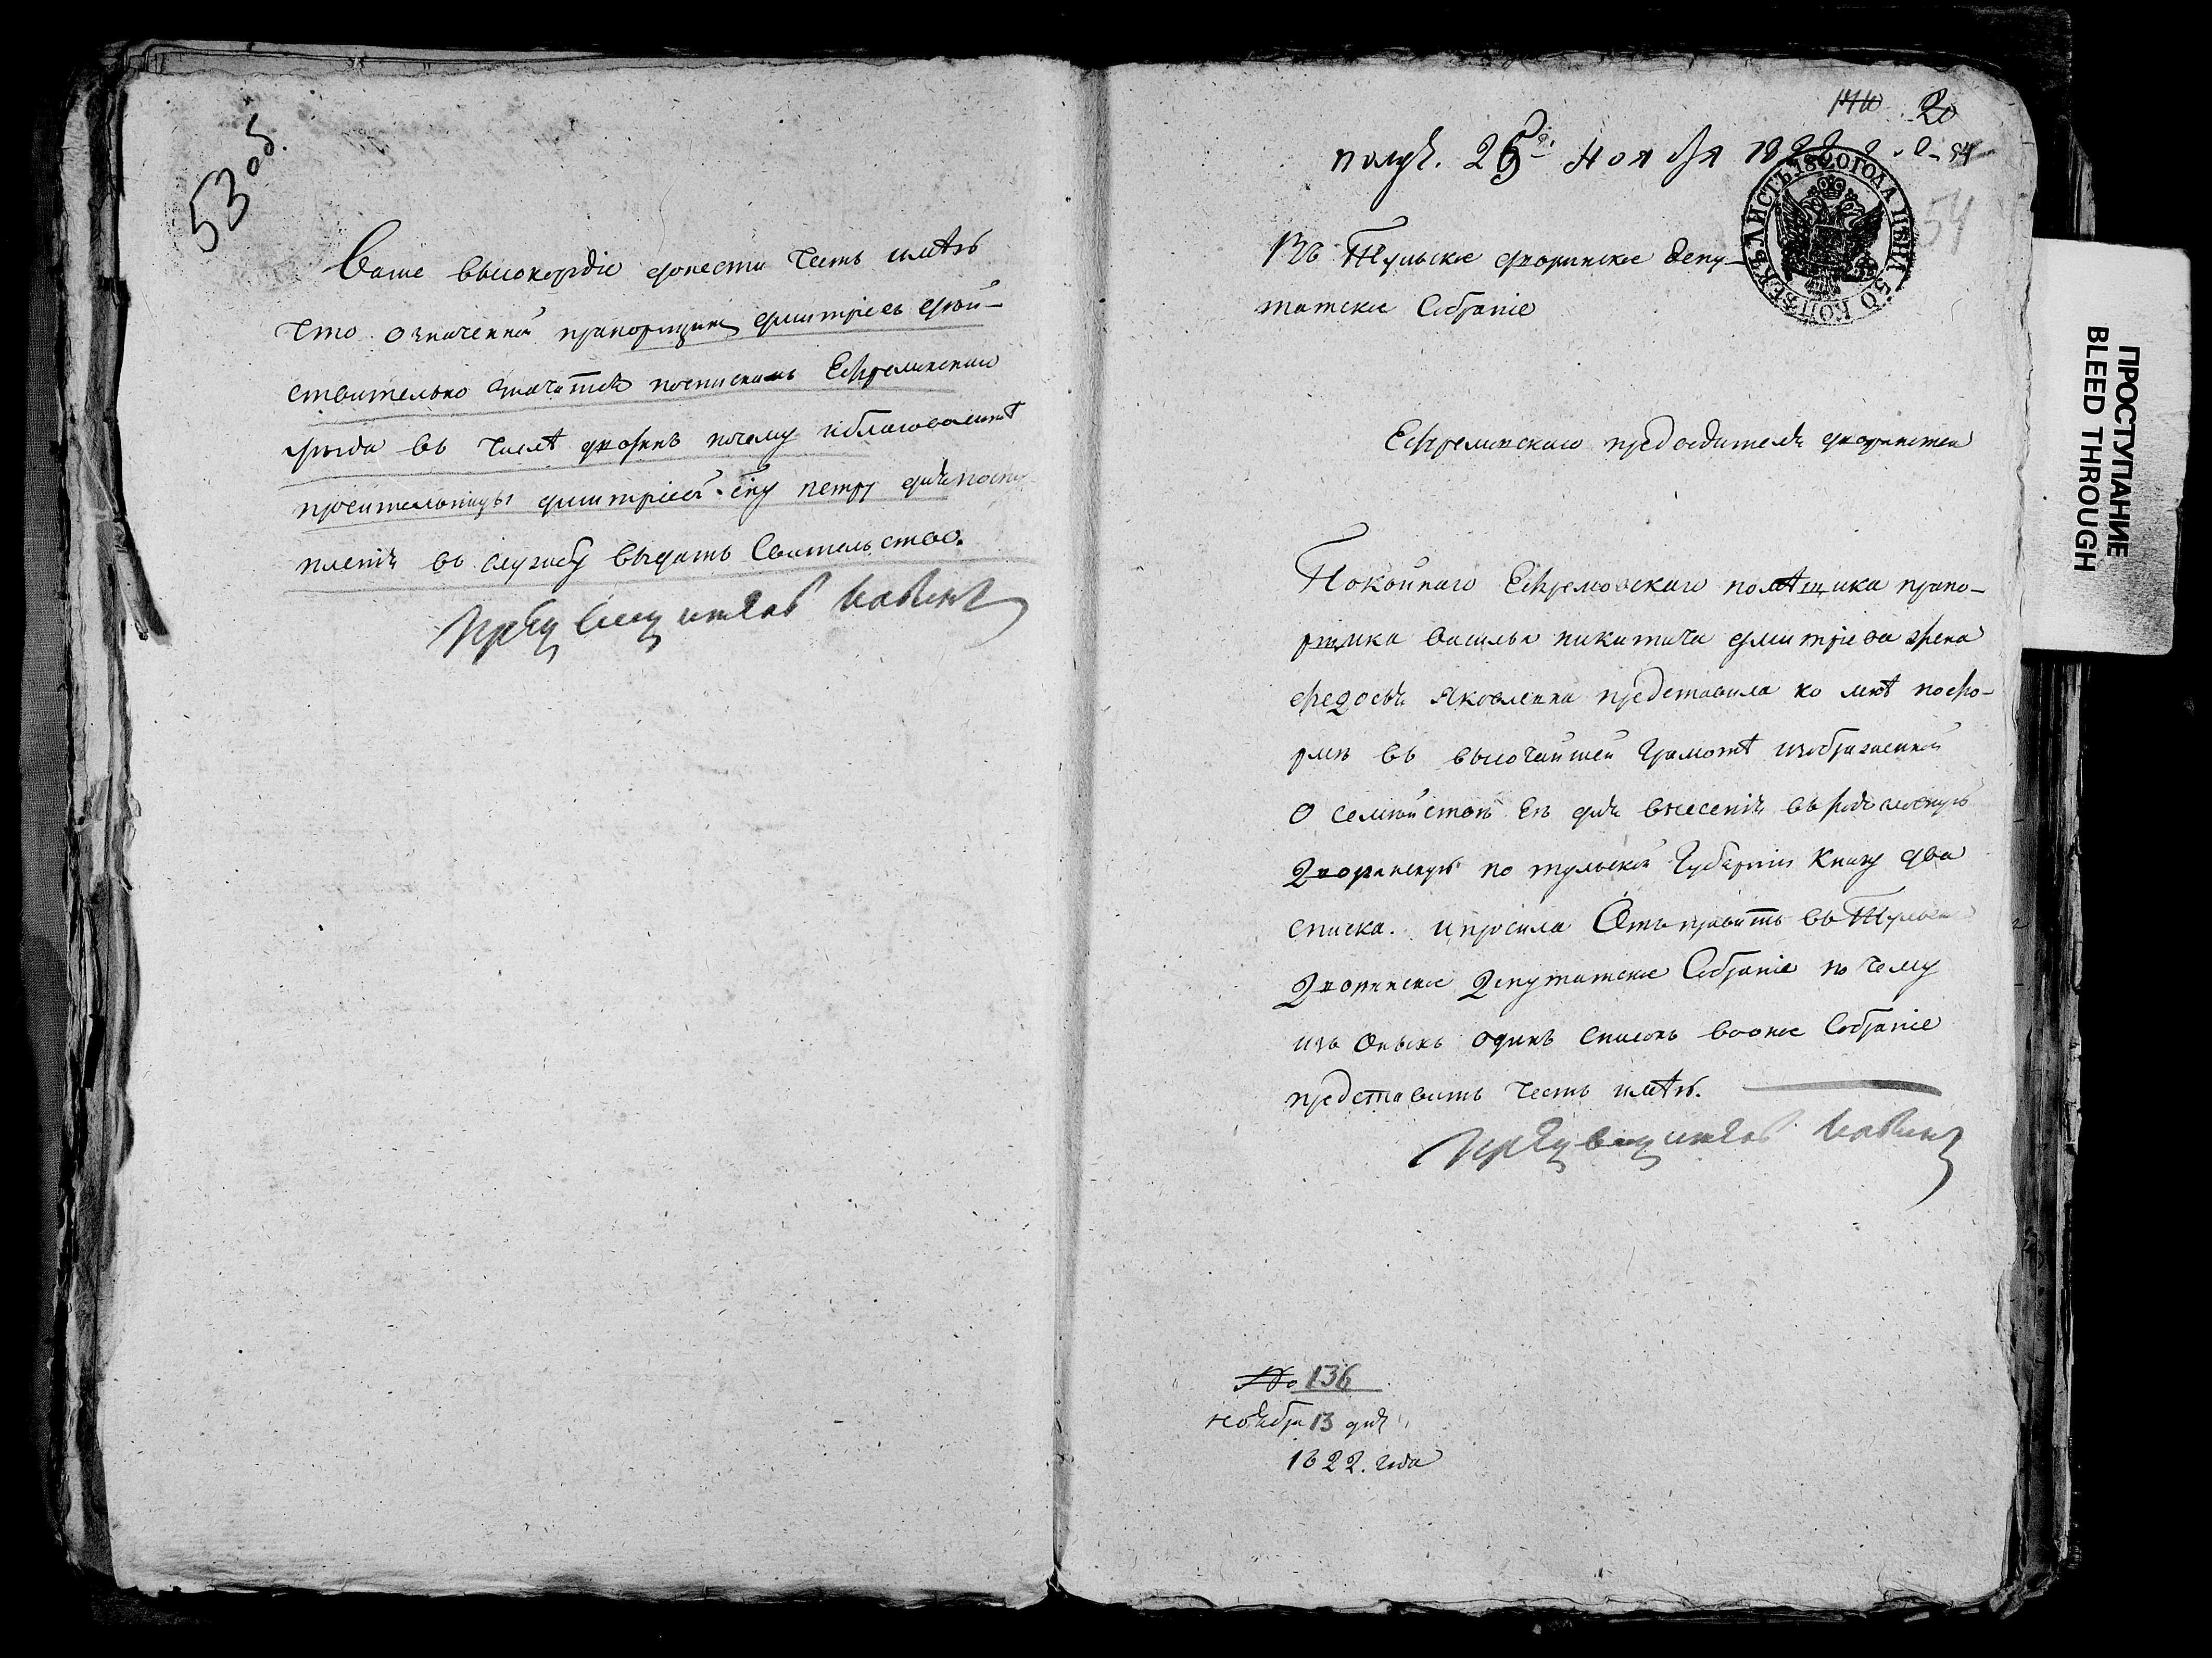 53 об.
Ваше высокородіе донести честь имѣю
что означенной прапорщикъ дмитріевъ дѣй-
ствительно значится поспискамъ Ефремовскаго
уѣзда въ числѣ дворянъ почему и благоволитѣ
просительницы дмитріевой сыну петру для посту-
пленія въ службу выдать Свитѣльство.
20
получ. 25 ноября 1822
54
54
ЛИСТЪ. 1820 ГОДА ЦѢНА 50 КОПѢЕКЪ
Въ Тульское дворянское депу-
татское Собраніе
Ефремовскаго предводителя дворянства
Покойнаго Ефремовскаго помѣщика прапо-
рщика василья никитича дмитріева жена
федосья Яковлевна представила ко мнѣ пофо-
рмѣ въ высочайшей Грамотѣ изображенной
О семействѣ Ея для внесенія въ родословную
Дворянскую по тульской Губерніи Книгу два
списка. и просила Отъправить въ Тульское
Дворянское Депутатское Собраніе по чему
изъ Оныхъ одинъ Списокъ вооное Собраніе
представить честь имѣю.
№ 136
ноября 13 дня
1822. года
ПРОСТУПАНИЕ
BLEED THROUGH